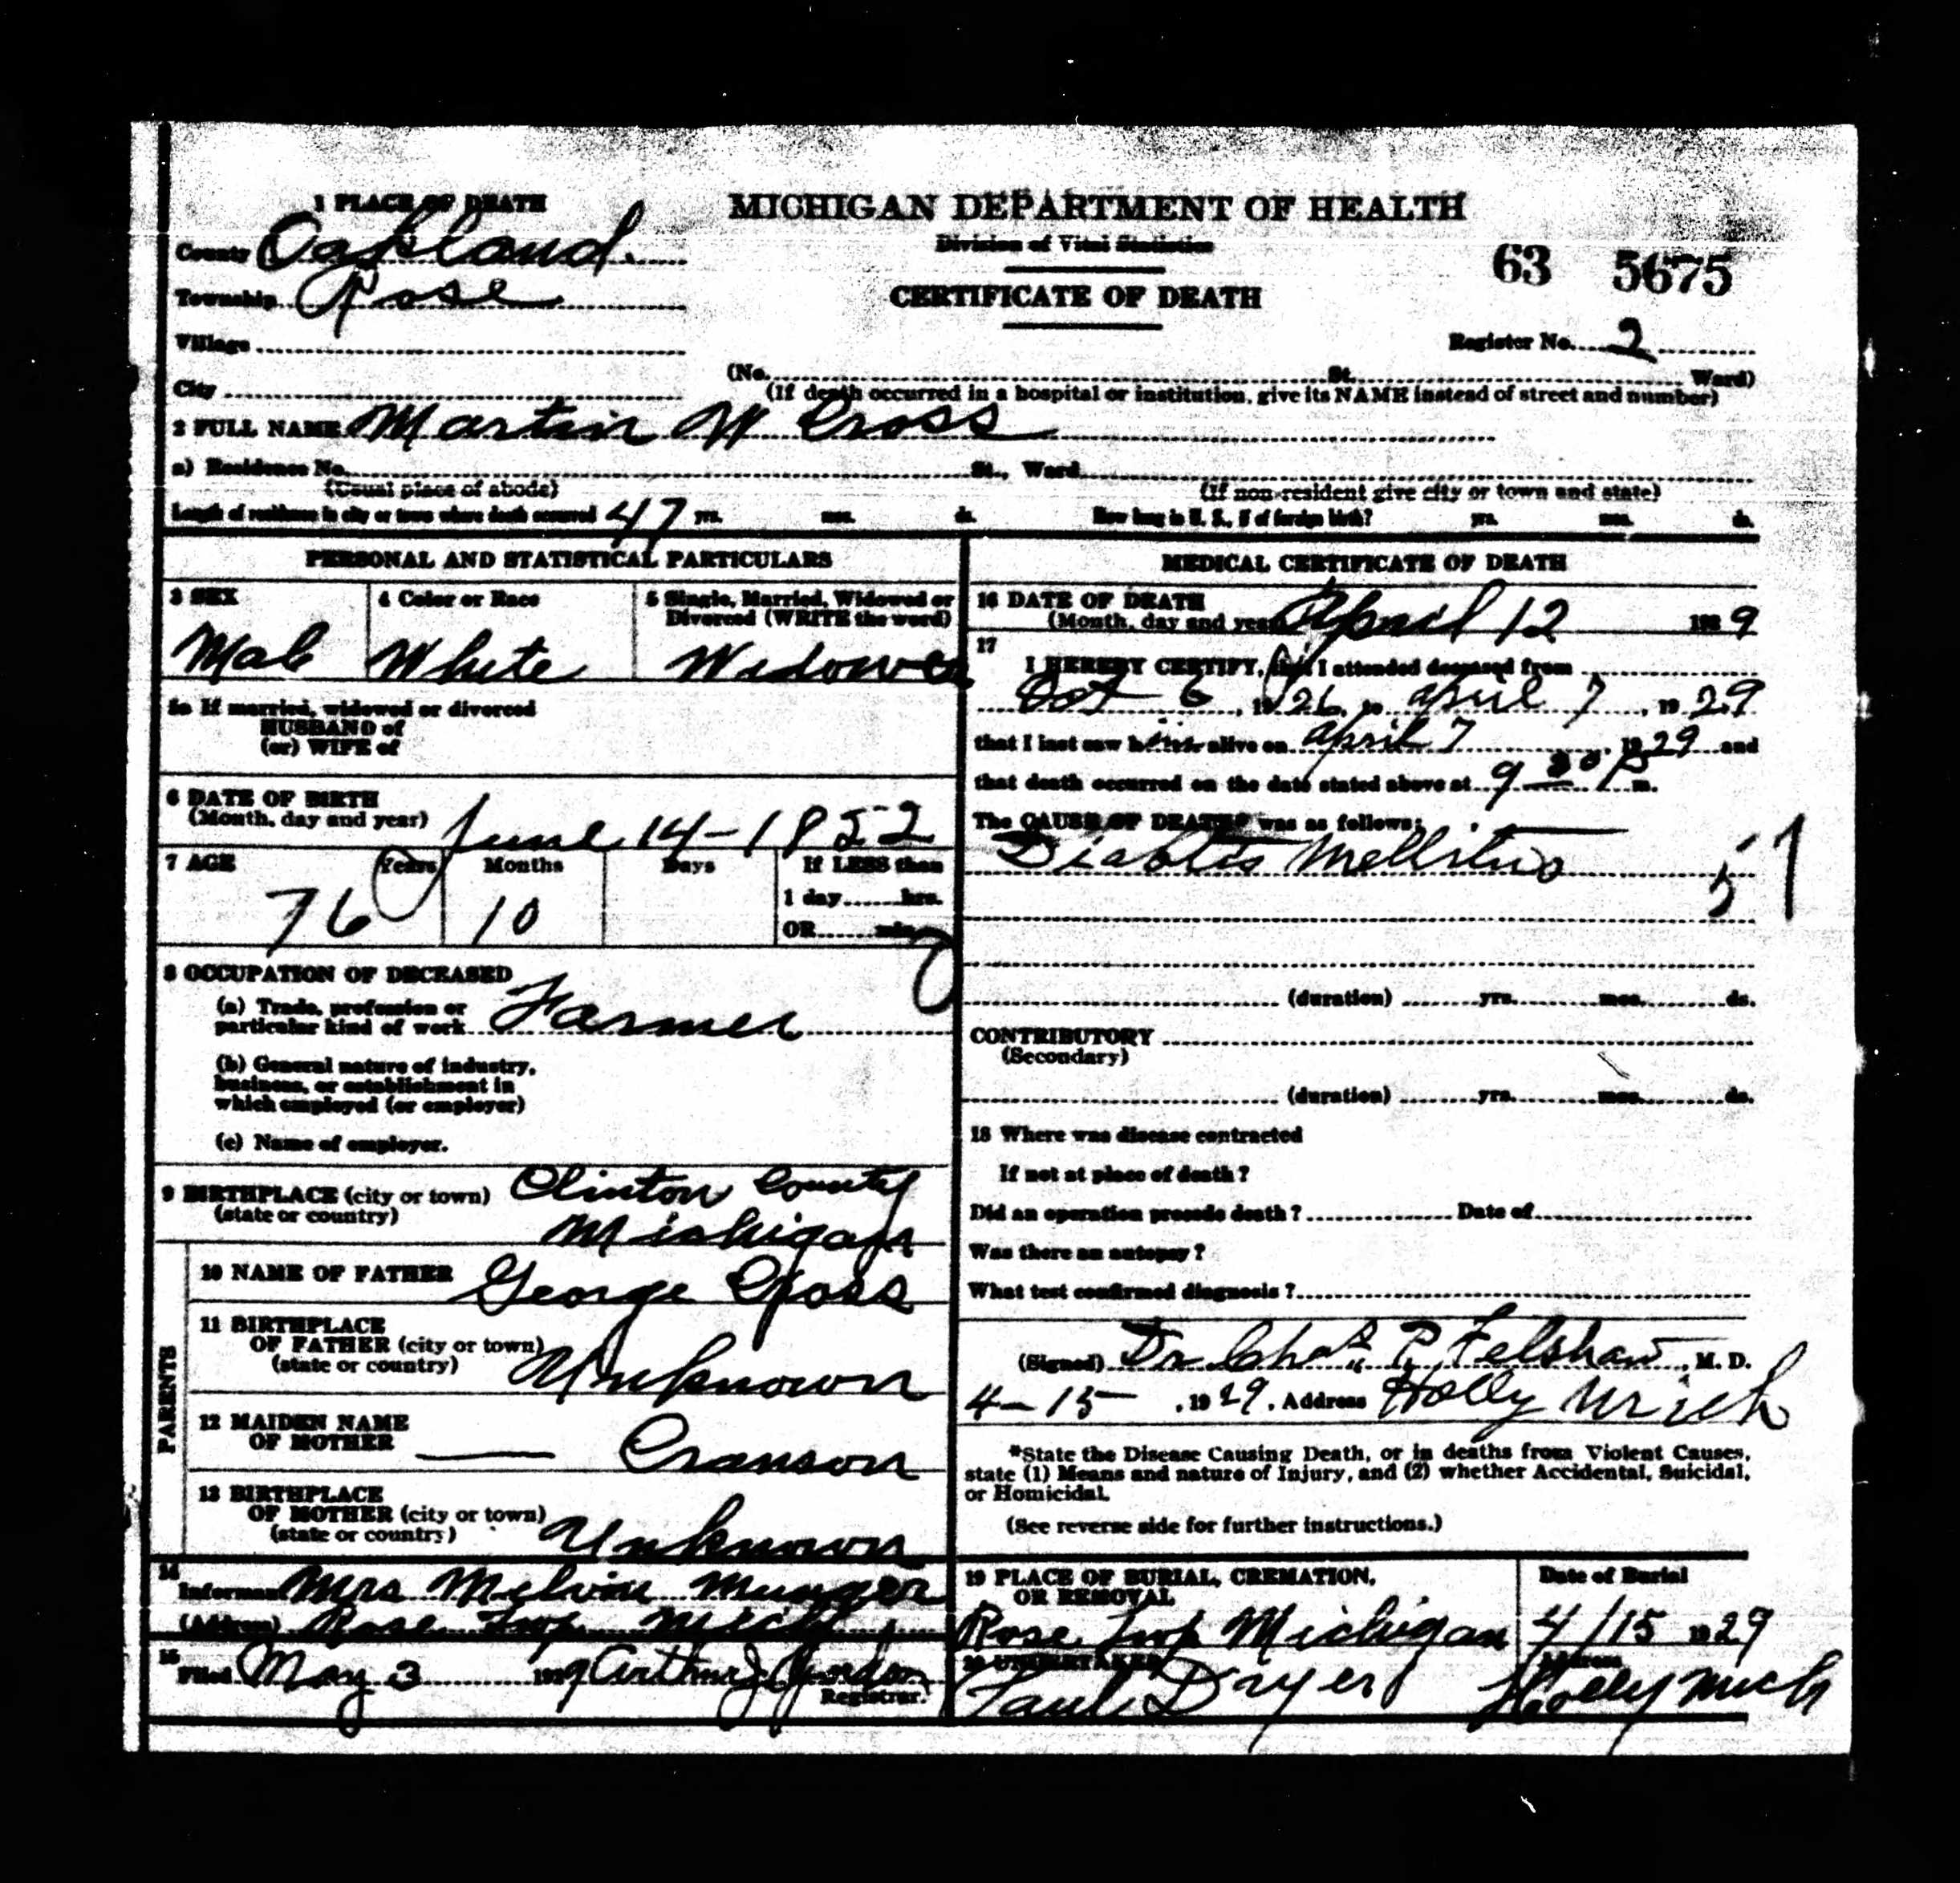 1 PLACE OF DEATH
MICHIGAN DEPARTMENT OF HEALTH
Division of Vital Statistics
CERTIFICATE OF DEATH
63 5675
County Oakland
Township Rose
Village
City
Register No. 2
(No. St. Ward)
(If death occurred in a hospital or institution, give its NAME instead of street and number)
2 FULL NAME Martin W Cross
a) Residence No. St., Ward
(Usual place of abode)
(If non-resident give city or town and state)
Length of residence in city or town where death occurred 47 yrs. mos. ds.
How long in U. S., if of foreign birth? yrs. mos. ds.
PERSONAL AND STATISTICAL PARTICULARS
3 SEX
Male
4 Color or Race
White
5 Single, Married, Widowed or
Divorced (WRITE the word)
Widower
5a If married, widowed or divorced
HUSBAND of
(or) WIFE of
6 DATE OF BIRTH
(Month, day and year) June 14-1852
7 AGE Years Months Days
76 10
If LESS than
1 day hrs.
OR min.
8 OCCUPATION OF DECEASED
(a) Trade, profession or
particular kind of work Farmer
(b) General nature of industry,
business, or establishment in
which employed (or employer)
(c) Name of employer.
9 BIRTHPLACE (city or town) Clinton County
(state or country) Michigan
PARENTS
10 NAME OF FATHER George Cross
11 BIRTHPLACE
OF FATHER (city or town)
(state or country) Unknown
12 MAIDEN NAME
OF MOTHER — Cranson
13 BIRTHPLACE
OF MOTHER (city or town)
(state or country) Unknown
14
Informant Mrs Melvin Munger
(Address) Rose Twp Mich
15
Filed May 3 1929 Arthur J
Registrar.
MEDICAL CERTIFICATE OF DEATH
16 DATE OF DEATH
(Month, day and year) April 12 1929
17
I HEREBY CERTIFY, that I attended deceased from
Oct 6, 1926, to April 7, 1929
that I last saw him alive on April 7, 1929 and
that death occurred on the date stated above at 9 30 P m.
The CAUSE OF DEATH* was as follows:
Diabtis Mellitus
(duration) yrs. mos. ds.
CONTRIBUTORY
(Secondary)
(duration) yrs. mos. ds.
18 Where was disease contracted
If not at place of death?
Did an operation precede death? Date of
Was there an autopsy?
What test confirmed diagnosis?
(Signed) Dr Chas P. Felshaw, M. D.
4-15, 1929, Address Holly Mich
*State the Disease Causing Death, or in deaths from Violent Causes,
state (1) Means and nature of Injury, and (2) whether Accidental, Suicidal,
or Homicidal.
(See reverse side for further instructions.)
19 PLACE OF BURIAL, CREMATION,
OR REMOVAL
Rose Twp Michigan
Date of Burial
4/15 1929
20 UNDERTAKER
Paul Dryer
Address
Holly Mich